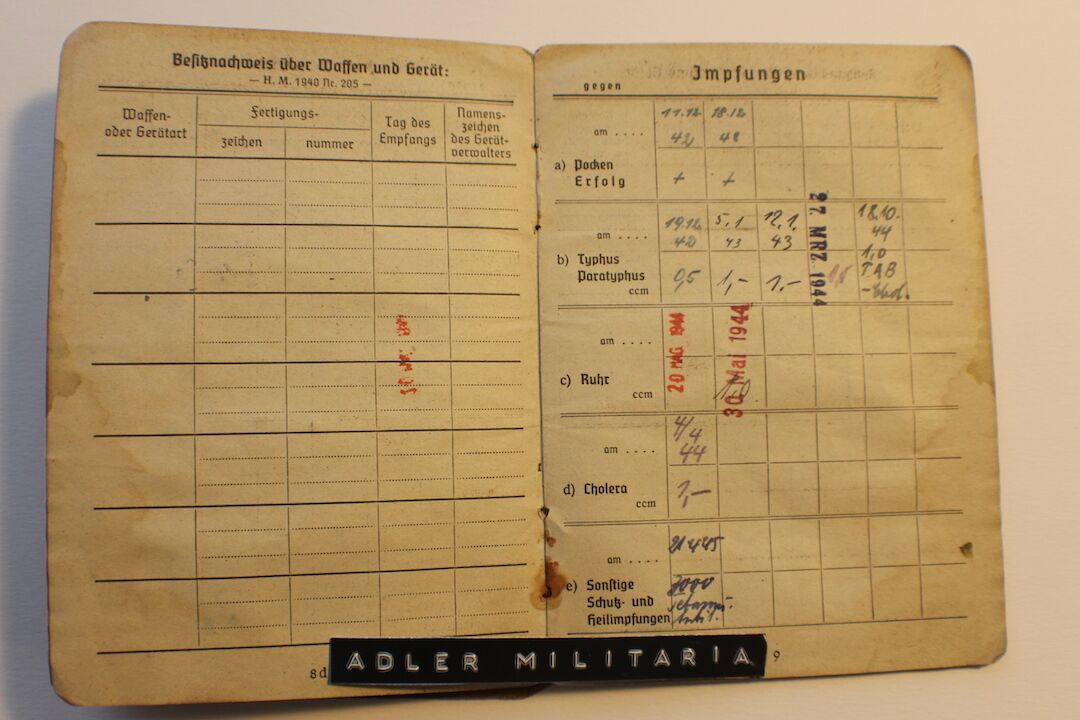 Besitznachweis über Waffen und Gerät:
— H. M. 1940 Nr. 205 —
Waffen-
oder Gerätart
Fertigungs-
zeichen
nummer
Tag des
Empfangs
Namens-
zeichen
des Gerät-
verwalters
8d
Impfungen
gegen
11.12 18.12
am ....
42 42
a) Pocken
Erfolg + +
19.12 5.1 12.1. 27. MRZ. 1944 18.10.
am .... 42 43 43 44
b) Typhus
Paratyphus
ccm
0,5 1,- 1.- 1,0
TAB
am ....
20 MAG 1944 30 Mai 1944
c) Ruhr
ccm 1,0
4/4
am .... 44
d) Cholera
ccm 1,-
21 4 45
am ....
e) Sonstige
Schutz- und
Heilimpfungen
3000
9
ADLER MILITARIA